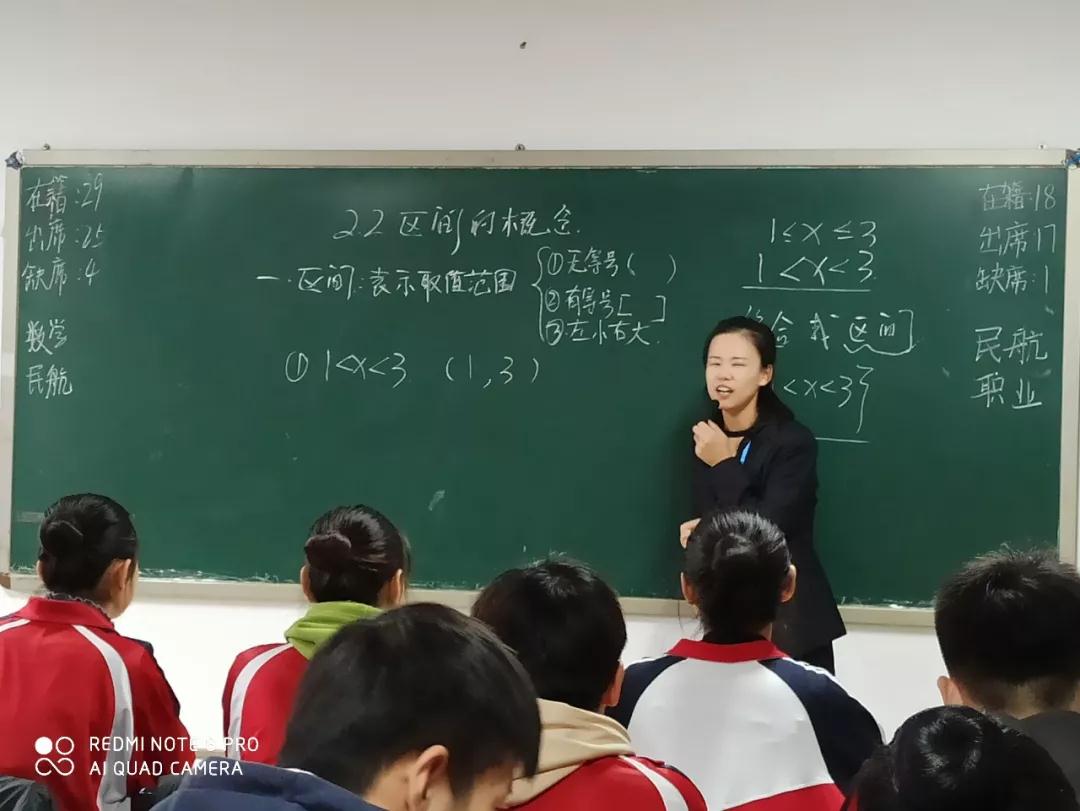 在籍:29
出席:25
缺席:4
数学
民航
2.2 区间的概念
一.区间:表示取值范围
①无等号( )
②有等号[ ]
③左小右大
① 1<x<3 (1,3)
1≤x≤3
1<x<3
或 区间
<x<3}
在籍:18
出席:17
缺席:1
民航
职业
REDMI NOTE 8 PRO
AI QUAD CAMERA